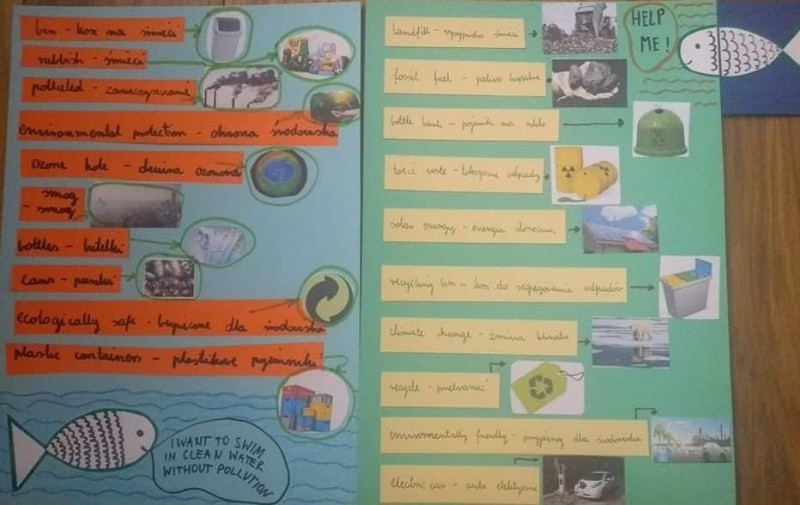 bin - kosz na śmieci
rubbish - śmieci
polluted - zanieczyszczone
environmental protection - ochrona środowiska
ozone hole - dziura ozonowa
smog
- smog
bottles - butelki
cans - puszki
ecologically safe - bezpieczne dla środowiska
plastic containers - plastikowe pojemniki
I WANT TO SWIM
IN CLEAN WATER
WITHOUT POLLUTION
HELP
ME!
landfill - wysypisko śmieci
fossil fuel - paliwo kopalne
bottle bank - pojemnik na szkło
toxic waste - toksyczne odpady
solar energy - energia słoneczna
recycling bin - kosz do segregowania odpadów
climate change - zmiana klimatu
recycle - przetwarzać
environmentally friendly - przyjazny dla środowiska
electric car - auto elektryczne